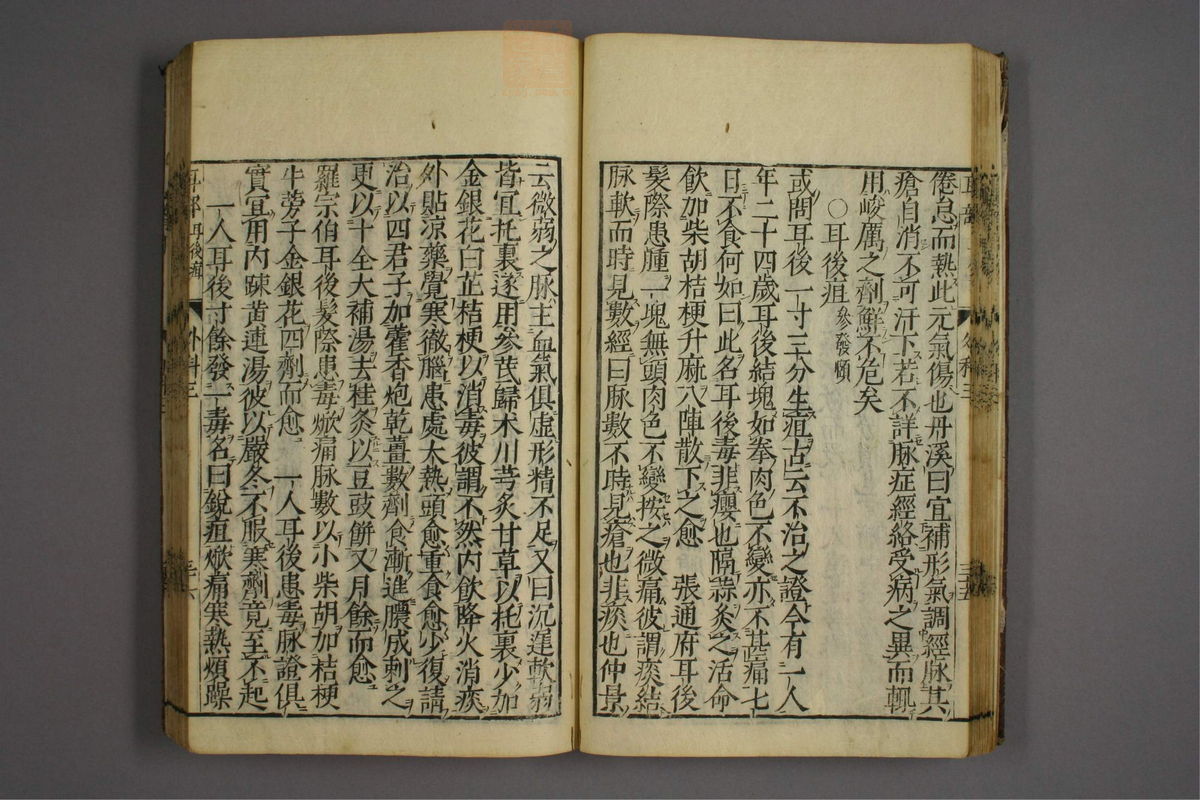 倦怠而熱此元氣傷也丹溪曰宜補形氣調經脉其
瘡自消不可汗下若不詳脉症經絡受病之異而輒
用峻厲之劑鮮不危矣
〇耳後疽 參發頤
或問耳後一寸三分生疽古云不治之證今有一人
年二十四歲耳後結塊如拳肉色不變亦不甚痛七
日不食何如曰此名耳後毒非癭也隔蒜灸之活命
飲加柴胡桔梗升麻八陣散下之愈 張通府耳後
髮際患腫一塊無頭肉色不變按之微痛彼謂痰結
脉軟而時見數經曰脉數不時見瘡也非痰也仲景
云微弱之脉主血氣俱虛形精不足又曰沉遲軟弱
皆宜托裏遂用參芪歸朮川芎炙甘草以托裏少加
金銀花白芷桔梗以消毒彼謂不然內飲降火消痰
外貼凉藥覺寒徹腦患處大熱頭愈重食愈少復請
治以四君子加藿香炮乾薑數劑食漸進膿成刺之
更以十全大補湯去桂灸以豆豉餅又月餘而愈
羅宗伯耳後髮際患毒焮痛脉數以小柴胡加桔梗
牛蒡子金銀花四劑而愈 一人耳後患毒脉證俱
實宜用內踈黃連湯彼以嚴冬不服寒劑竟至不起
一人耳後寸餘發一毒名曰銳疽焮痛寒熱煩躁
耳部 耳後疽 外科三 三十六